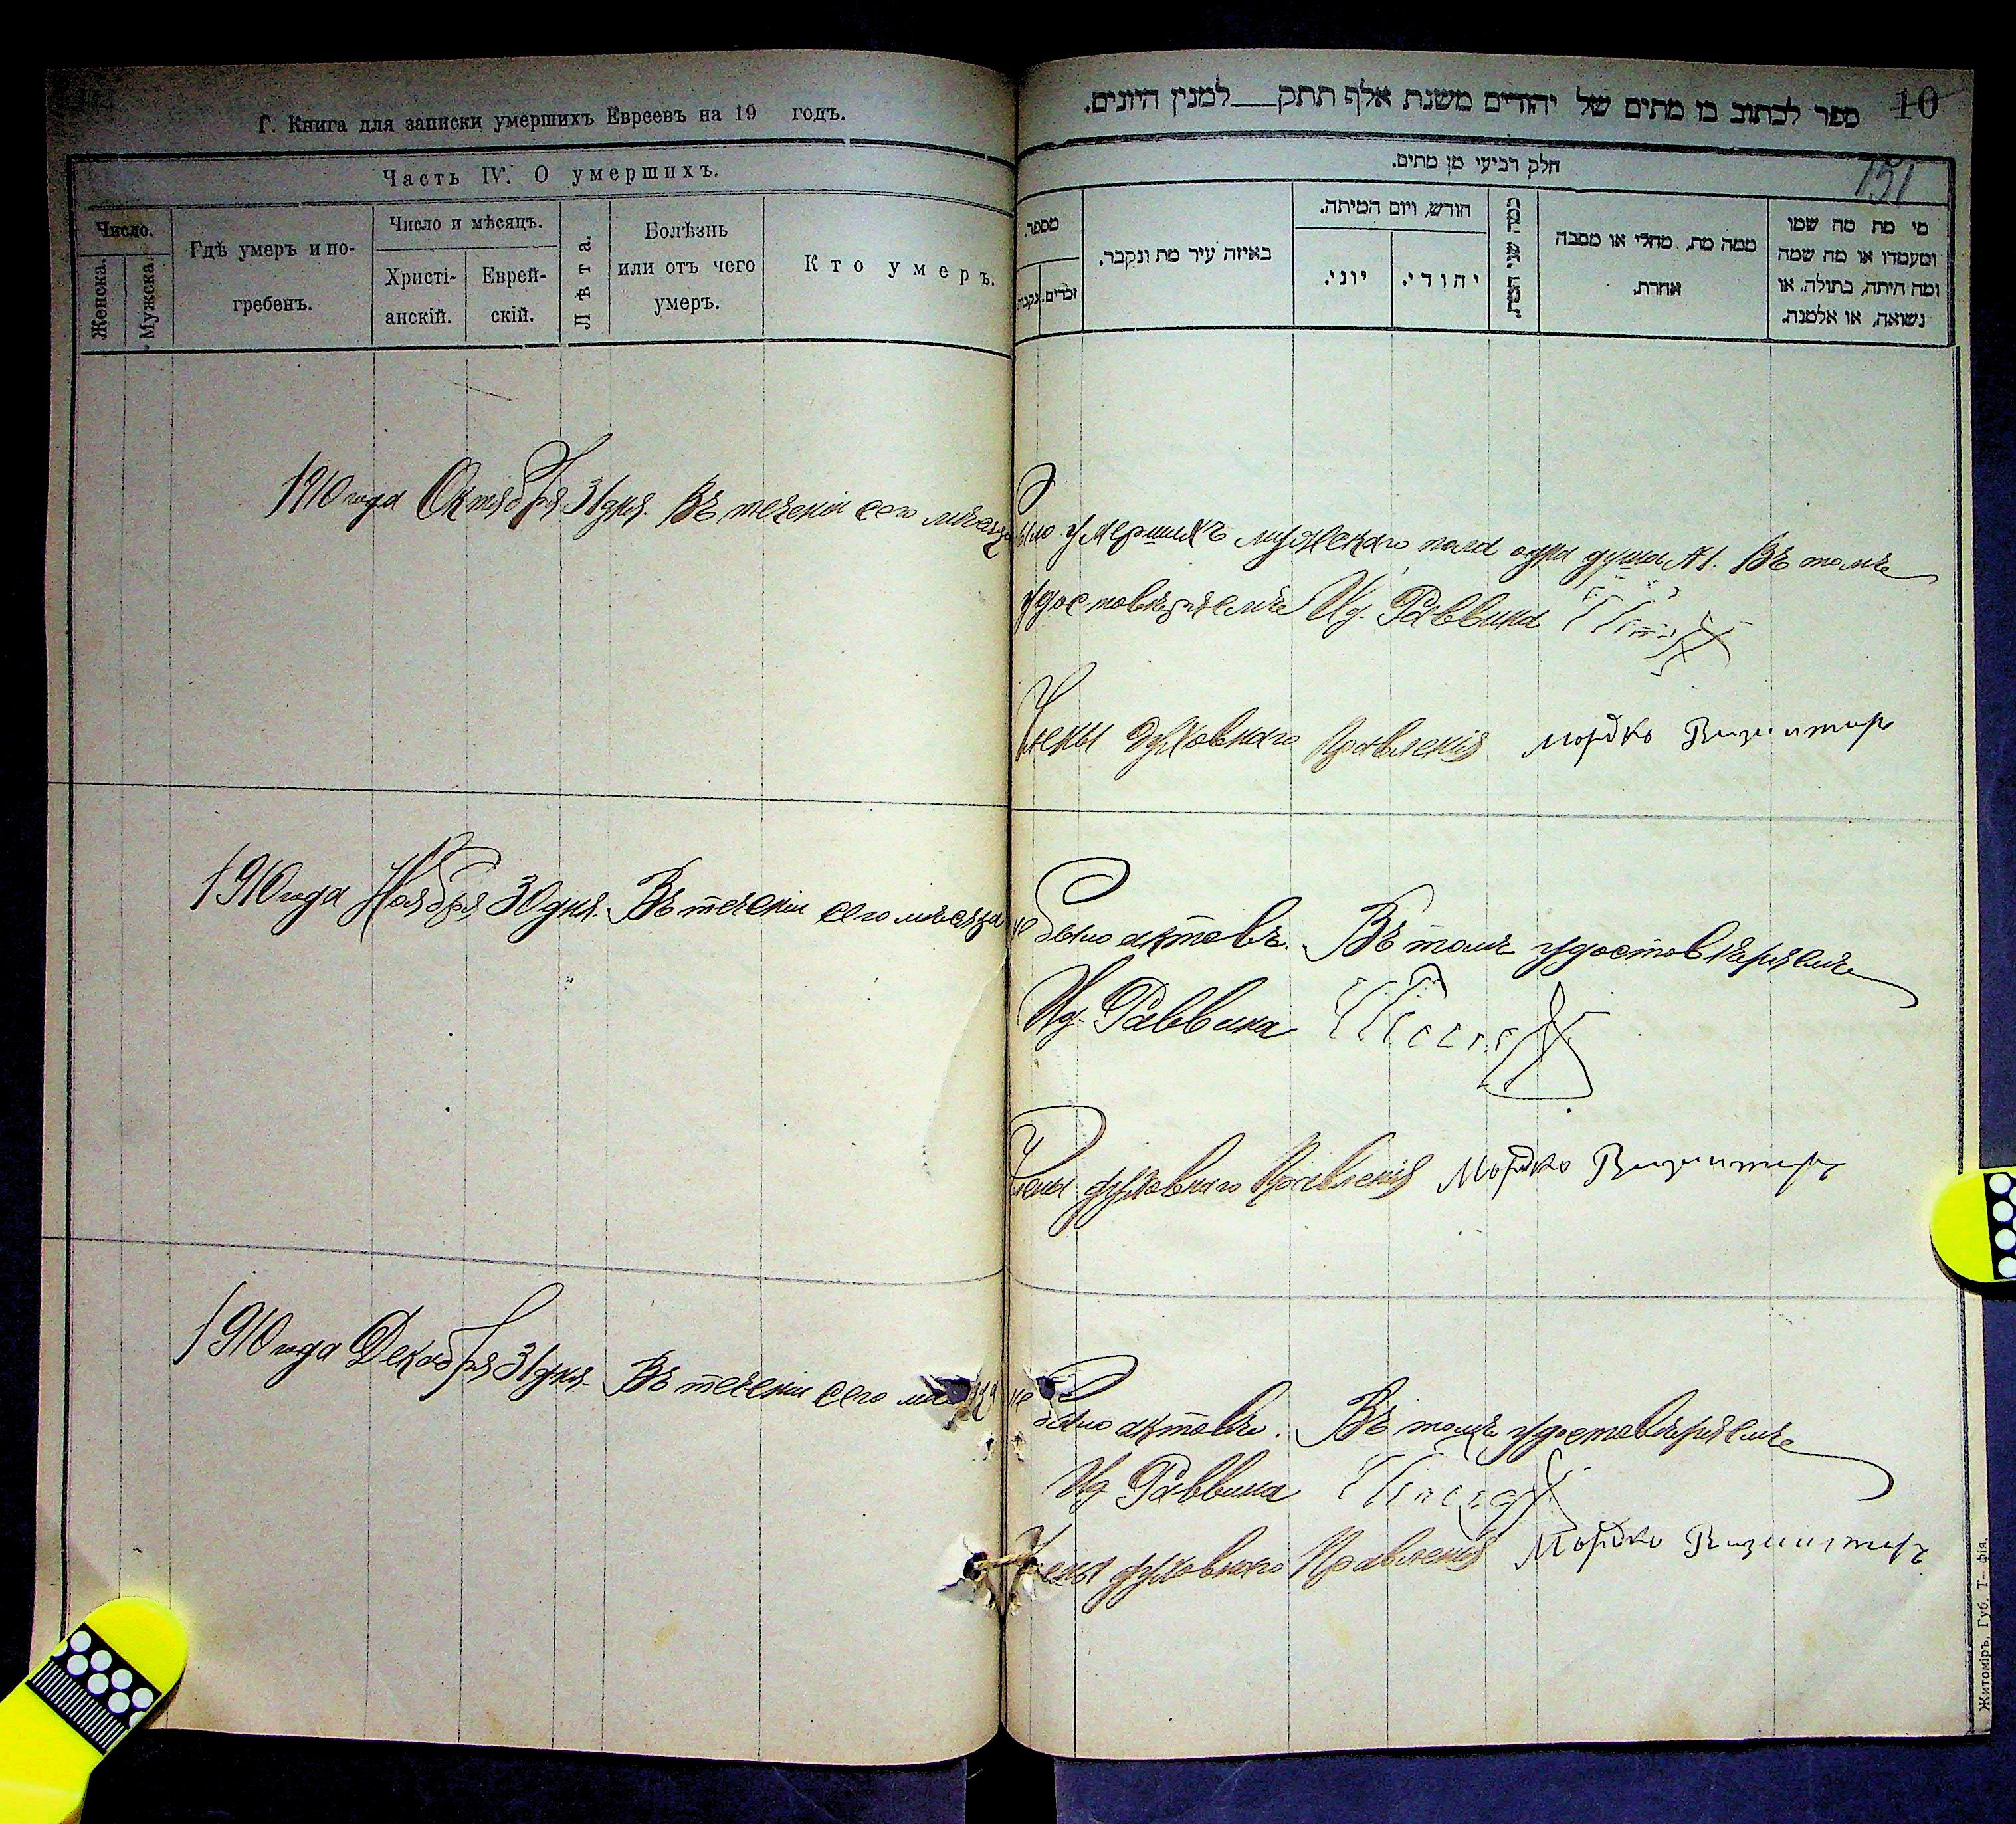 Г. Книга для записки умершихъ Евреевъ на 19 годъ.
Часть IV. О умершихъ.
Число.
Женска.
Мужска.
Гдѣ умеръ и по-
гребенъ.
Число и мѣсяцъ.
Христі-
анскій.
Еврей-
скій.
Лѣта.
Болѣзнь
или отъ чего
умеръ.
Кто умеръ.
10
ספר לכתוב בו מתים של יהודים משנת אלף תתק__למנין היונים.
151
חלק רביעי מן מתים.
מספר.
זכרים.
נקבות
באיזה עיר מת ונקבר.
חודש, ויום המיתה.
יוני.
יהודי.
כמה שני המת.
ממה מת, מחלי או מסבה
אחרת.
מי מת מה שמו
ומעמדו או מה שמה
ומה היתה, בתולה, או
נשואה, או אלמנה.
1910 года Октября 31 дня. Въ теченіи сего мѣсяца было умершихъ мужскаго пола одна душа №1. Въ томъ
удостовѣряемъ Ид. Раввина
Члены Духовнаго Правленія Мордко
1910 года Ноября 30 дня. Въ теченіи сего мѣсяца не было актовъ. Въ томъ удостовѣряемъ
Ид. Раввина
Члены духовнаго Правленія Мордко
1910 года Декабря 31 дня. Въ теченіи сего мѣсяца не было актовъ. Въ томъ удостовѣряемъ
Ид. Раввина
Члены духовнаго Правленія Мордко
Житоміръ, Губ. Т—фія.